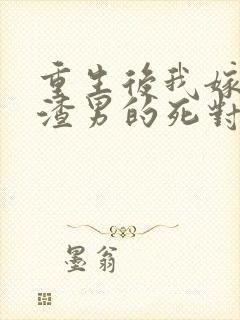 重生後我嫁
渣男的死對
墨翁